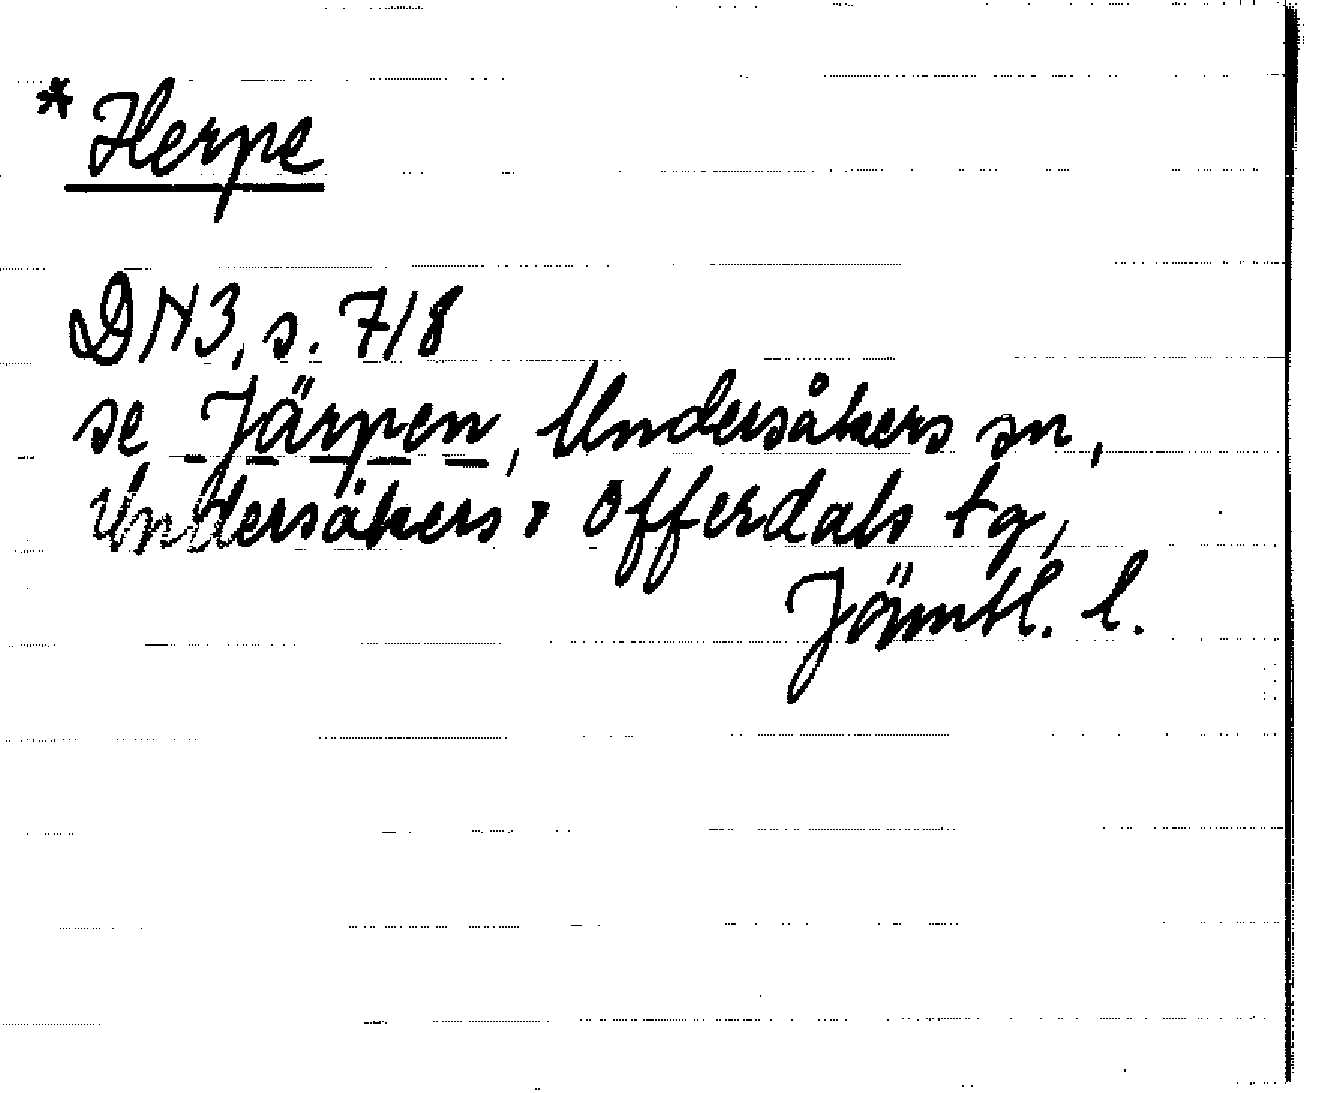 * Herpe
DN3, s. 718
se Järpen, Undersåkers sn,
Undersåkers o Offerdals tg,
Jämtl. l.